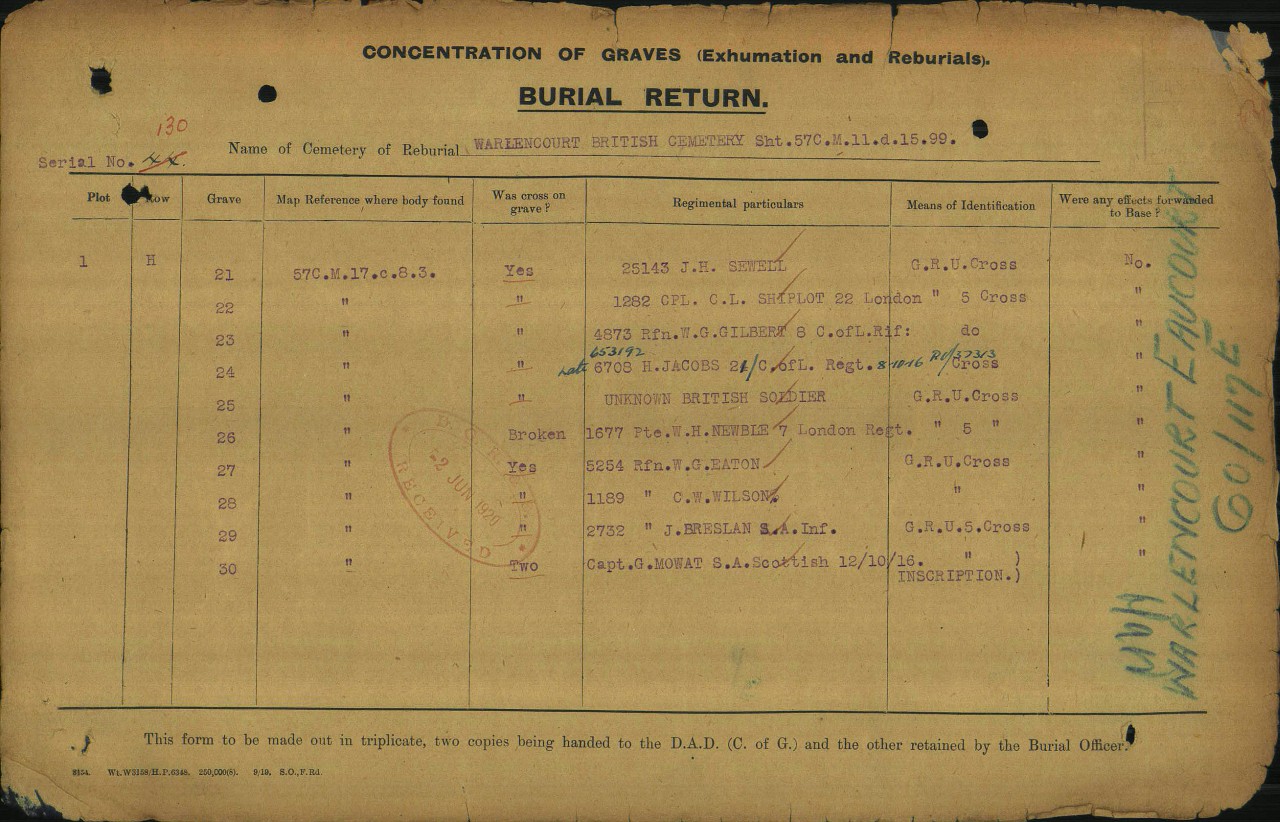 CONCENTRATION OF GRAVES (Exhumation and Reburials).
BURIAL RETURN.
130
Serial No.
Name of Cemetery of Reburial WARLENCOURT BRITISH CEMETERY Sht.57C.M.11.d.15.99.
Plot Row Grave Map Reference where body found Was cross on grave? Regimental particulars Means of Identification Were any effects forwarded to Base?
1 H 21 57C.M.17.c.8.3. Yes 25143 J.H. SEWELL G.R.U.Cross No.
22 " " 1282 CPL. C.L. SHIPLOT 22 London " 5 Cross "
23 " " 4873 Rfn.W.G.GILBERT 8 C.ofL.Rif: do "
653192
24 " " late 6708 H.JACOBS 21/C.ofL. Regt. 8-10-16 Cross "
25 " " UNKNOWN BRITISH SOLDIER G.R.U.Cross "
26 " Broken 1677 Pte.W.H.NEWBLE 7 London Regt. " 5 " "
27 " Yes 5254 Rfn.W.G.EATON G.R.U.Cross "
28 " " 1189 " C.W.WILSON. " "
29 " " 2732 " J.BRESLAN S.A.Inf. G.R.U.5.Cross "
30 " Two Capt.G.MOWAT S.A.Scottish 12/10/16. " ) "
INSCRIPTION.)
RECEIVED
-2 JUN 1920
WARLENCOURT EAUCOURT
60/117E
This form to be made out in triplicate, two copies being handed to the D.A.D. (C. of G.) and the other retained by the Burial Officer.
8154. Wt.W3158/H.P.6348. 250,000(8). 9/19. S.O.,F.Rd.